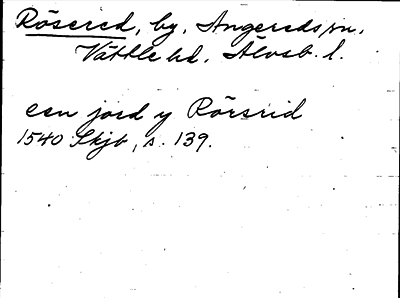 Rösered, by, Angereds sn.
Vättle hd, Älvsb. l.
een jord y Rörsrid
1540 Skjb, s. 139.